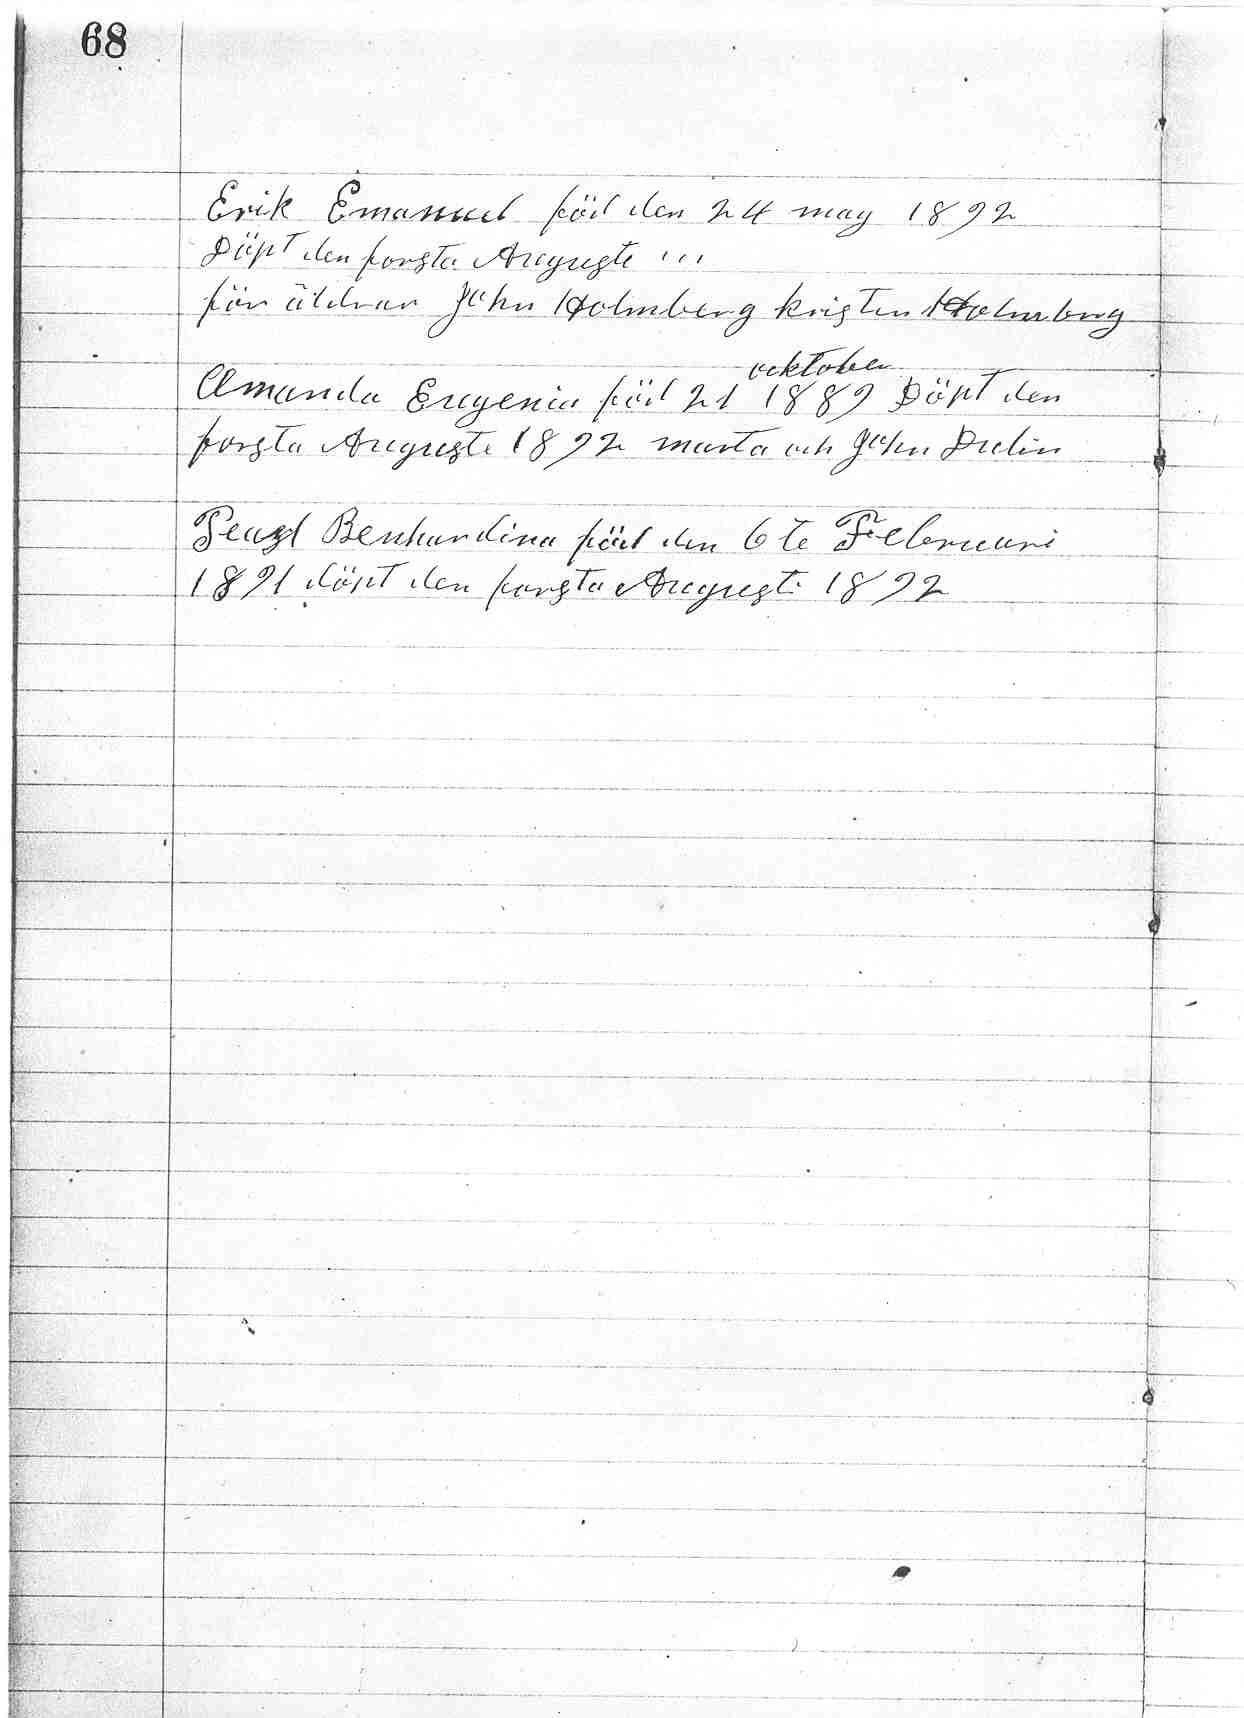 68
Erik Emanuel född den 24 may 1892
Döpt den forsta Auguste ,,,
för äldrar John Holmberg kristin Holmberg
ocktober
Amanda Eugenia född 21 1889 Döpt den
forsta Auguste 1892 marta och John Dulin
Pearl Benhardina född den 6 te Februari
1891 döpt den forsta Augusti 1892